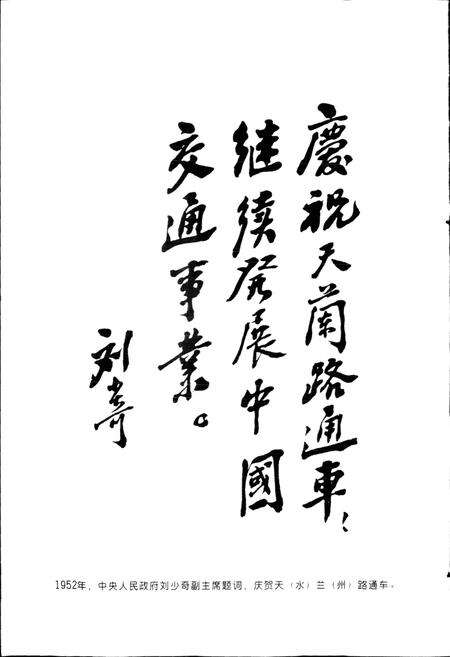 慶祝天蘭路通車；
继續発展中國
交通事業。
刘少奇
1952年，中央人民政府刘少奇副主席题词，庆贺天（水）兰（州）路通车。